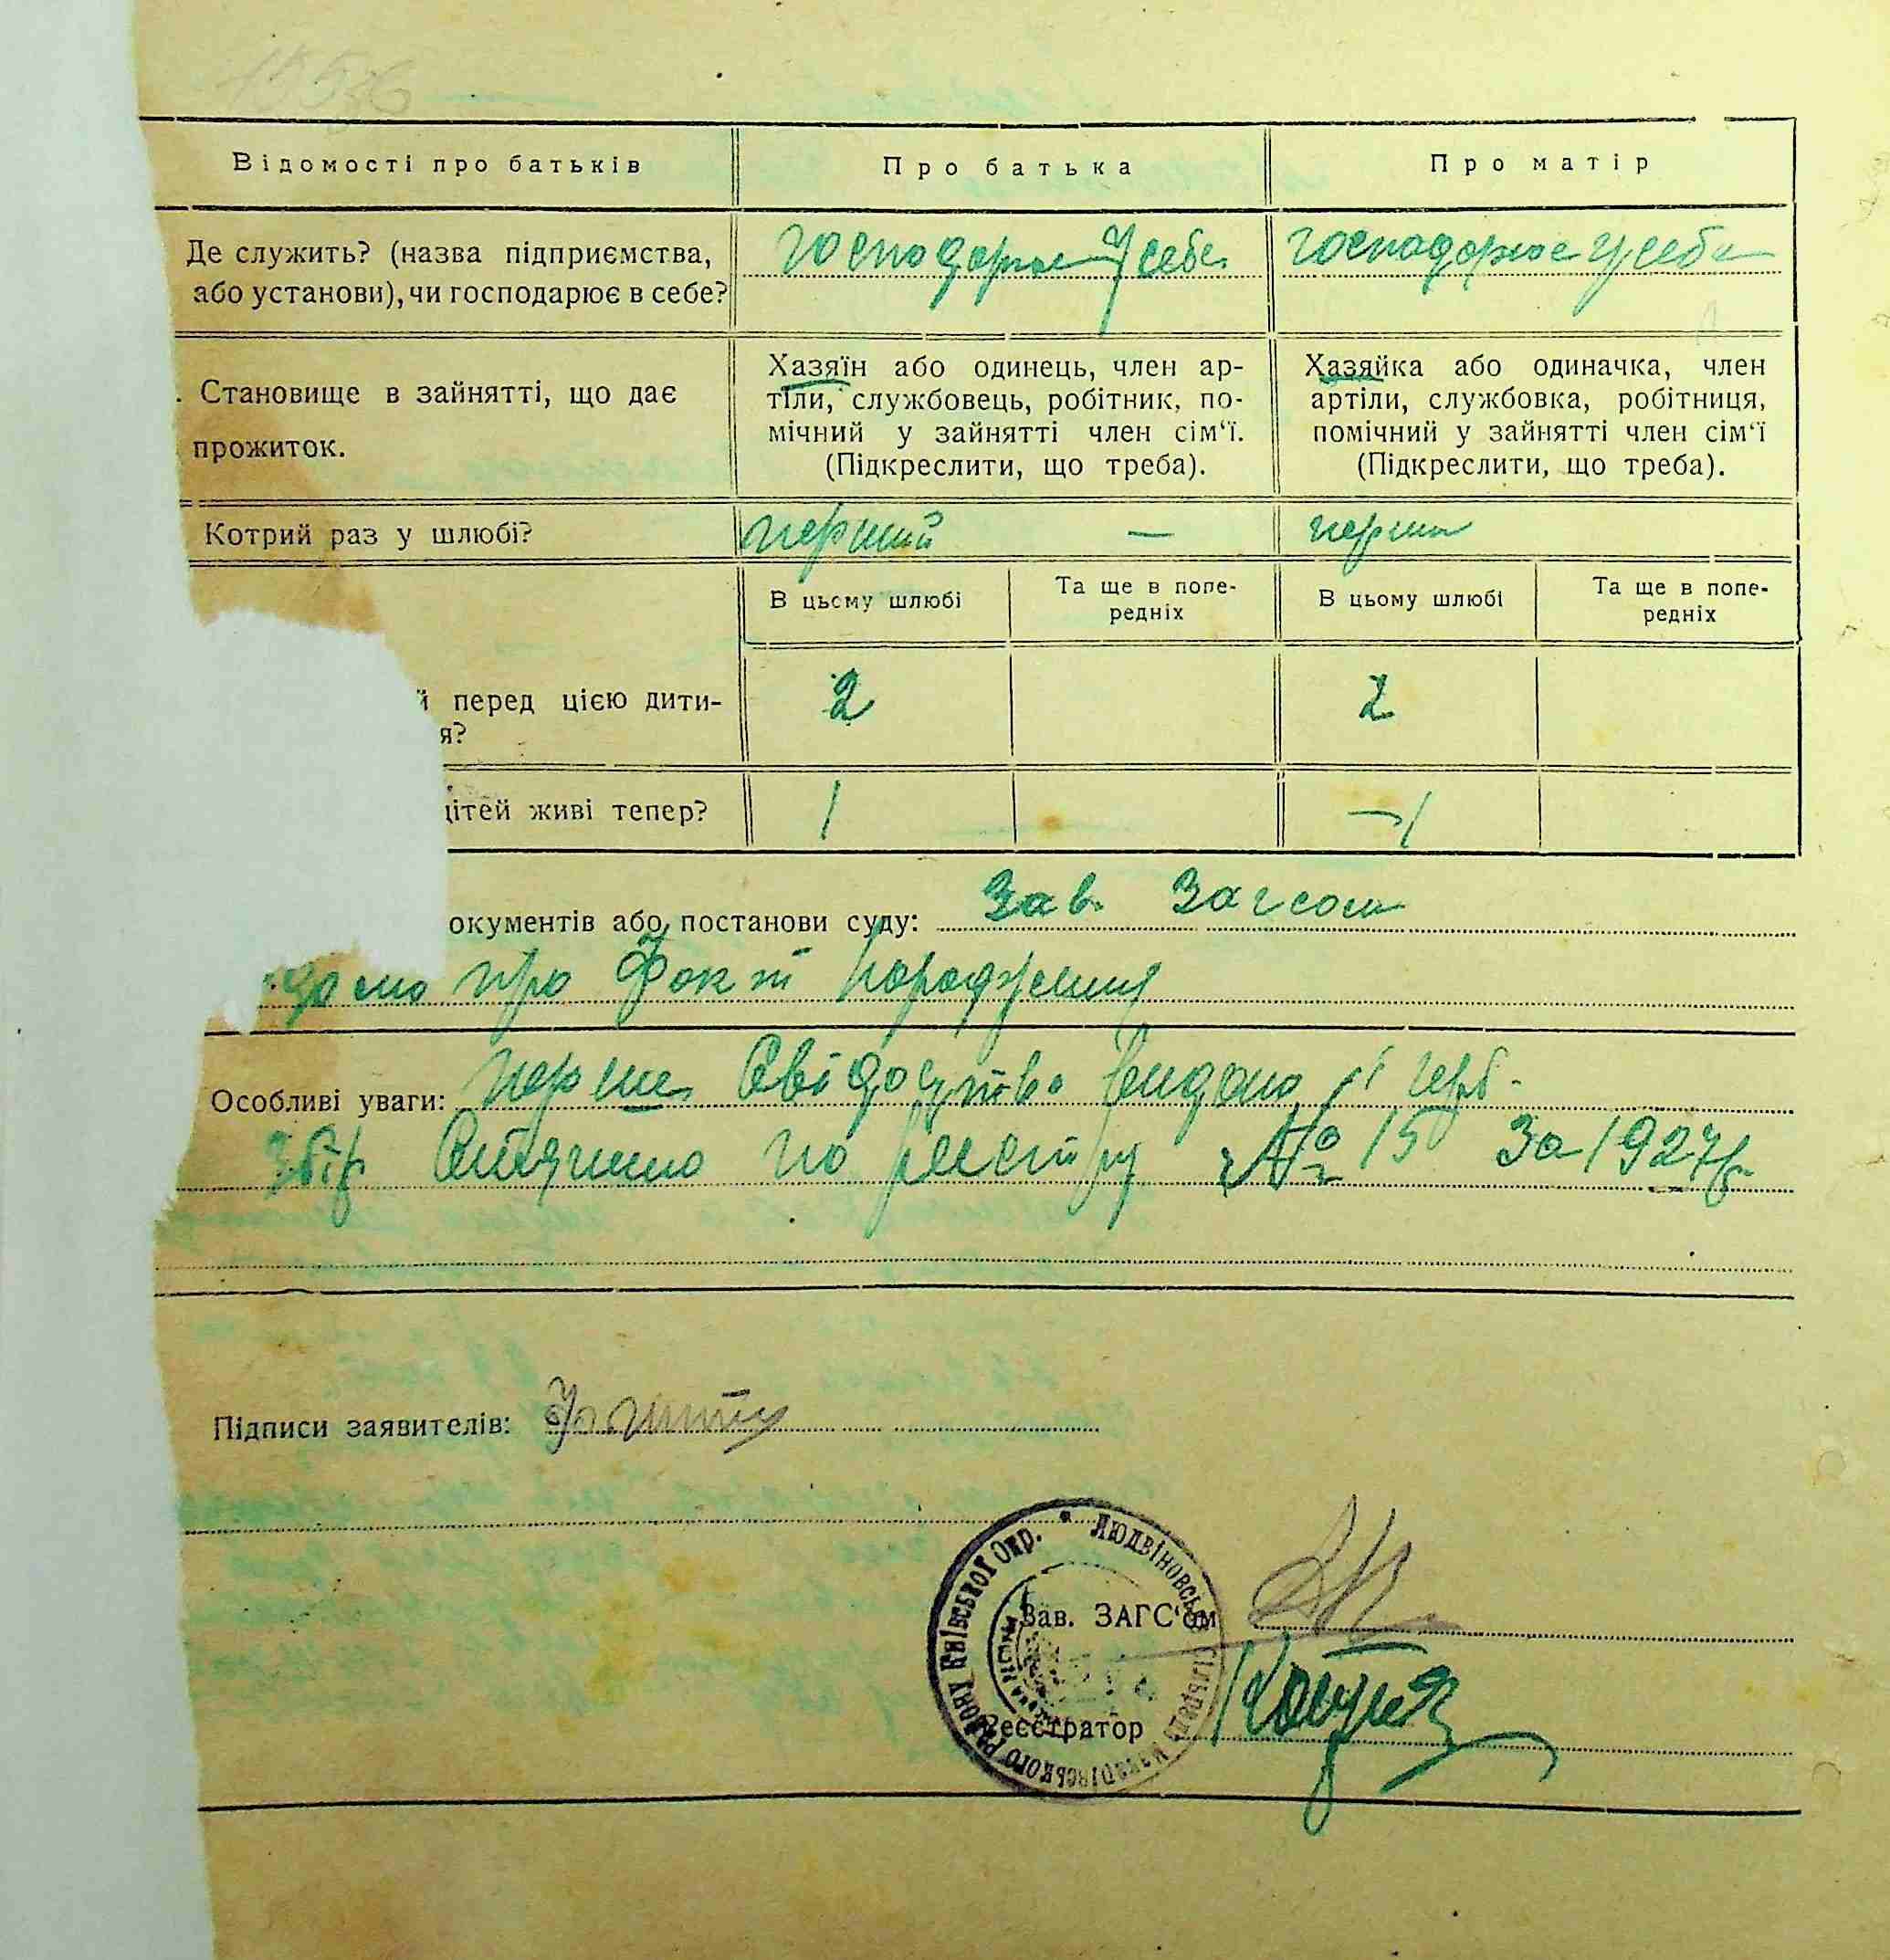 1556
Відомості про батьків Про батька Про матір
Де служить? (назва підприємства, або установи), чи господарює в себе?
господарює у себе
господарює у себе
. Становище в зайнятті, що дає прожиток.
Хазяїн або одинець, член ар-
тіли, службовець, робітник, по-
мічний у зайнятті член сім‘ї.
(Підкреслити, що треба).
Хазяйка або одиначка, член
артіли, службовка, робітниця,
помічний у зайнятті член сім‘ї
(Підкреслити, що треба).
Котрий раз у шлюбі? перший — перши
В цьому шлюбі Та ще в попе-
редніх В цьому шлюбі Та ще в попе-
редніх
й перед цією дити-
я? 2 2
дітей живі тепер? 1 1
окументів або постанови суду: Зав. Загсом
домо про Факт народження
Особливі уваги: перше Свідоцтво видано й герб.
Збір Стягнено по реєстру № 15 За 1927р.
Підписи заявителів:
Людвіновська Сільрада Макарівського Району Київської Окр.
Зав. ЗАГС‘ом
Реєстратор